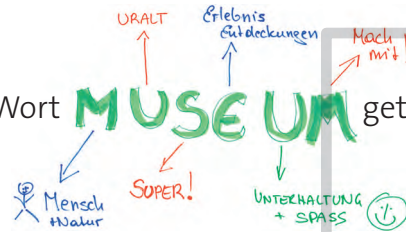 URALT
Erlebnis
Entdeckungen
Mach
mit
Wort MUSEUM get
Mensch
+Natur
SUPER!
UNTERHALTUNG
+ SPASS